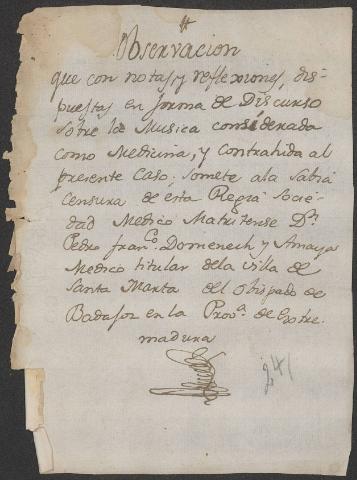 Observacion
que con notas, y reflexiones, dis-
puestas en forma de Discurso
sobre la Musica considerada
como Medicina, y contrahida al
presente Caso: somete ala Sabia
Censura de ésta Regia Socie-
dad Medico Matritense Dn.
Pedro Franco. Domenech y Amaya
Medico titular dela Villa de
Santa Marta del Obispado de
Badajoz en la Prova. de Extre-
madura
241